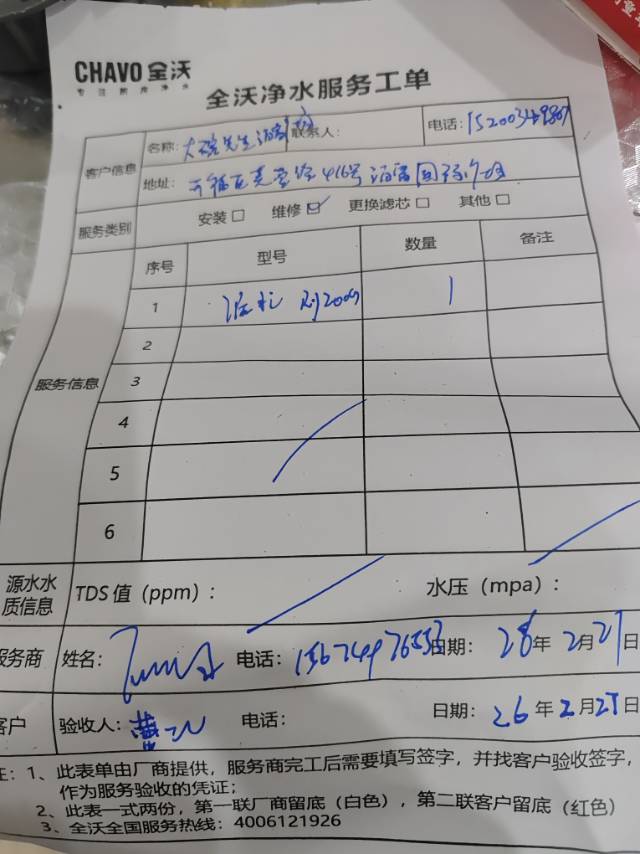 CHAVO 全沃
专注厨房净水
全沃净水服务工单
客户信息
名称: 大碗先生酒 联系人: 电话: 15200349807
地址: 开福区 416号
服务类别 安装 维修 更换滤芯 其他
服务信息
序号 型号 数量 备注
1 2009 1
2
3
4
5
6
源水水质信息 TDS 值（ppm）: 水压（mpa）:
服务商 姓名: 电话: 日期: 28年 2月27日
客户 验收人: 曹 电话: 日期: 26年2月27日
注: 1、此表单由厂商提供，服务商完工后需要填写签字，并找客户验收签字，
作为服务验收的凭证;
2、此表一式两份，第一联厂商留底（白色），第二联客户留底（红色）
3、全沃全国服务热线: 4006121926